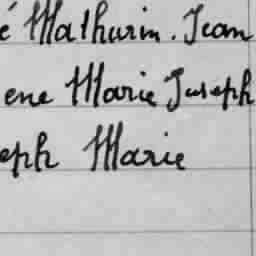 é Mathurin. Jean
ene Marie Joseph
eph Marie